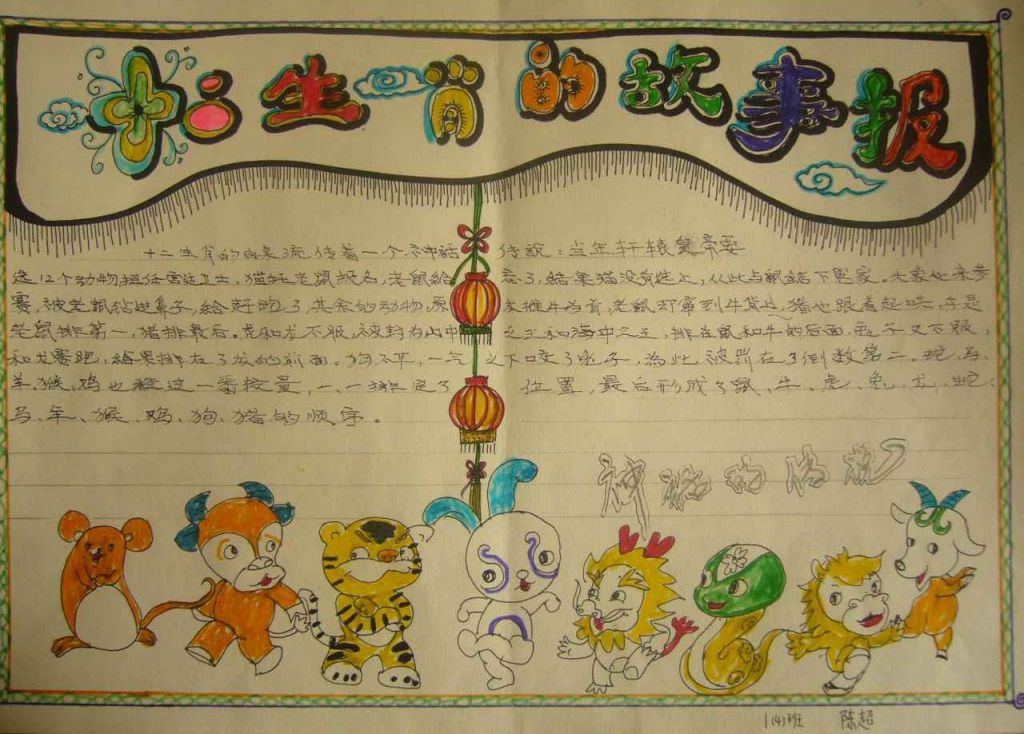 十二生肖的故事报
十二生肖的由来流传着一个神话传说:当年轩辕黄帝要
选12个动物担任宫廷卫士,猫托老鼠报名,老鼠给忘了,结果猫没有选上,从此与鼠结下冤家。大象也来参
赛,被老鼠钻进鼻子,给赶跑了,其余的动物,原本推牛为首,老鼠却窜到牛背上,猪也跟着起哄,于是
老鼠排第一,猪排最后。虎和龙不服,被封为山中之王和海中之王,排在鼠和牛的后面。兔子又不服,
和龙赛跑,结果排在了龙的前面。狗不平,一气之下咬了兔子,为此被罚在了倒数第二。蛇、马、
羊、猴、鸡也经过一番较量,一一排定了位置,最后形成了鼠、牛、虎、兔、龙、蛇、
马、羊、猴、鸡、狗、猪的顺序。
神话的传说
1(4)班 陈超